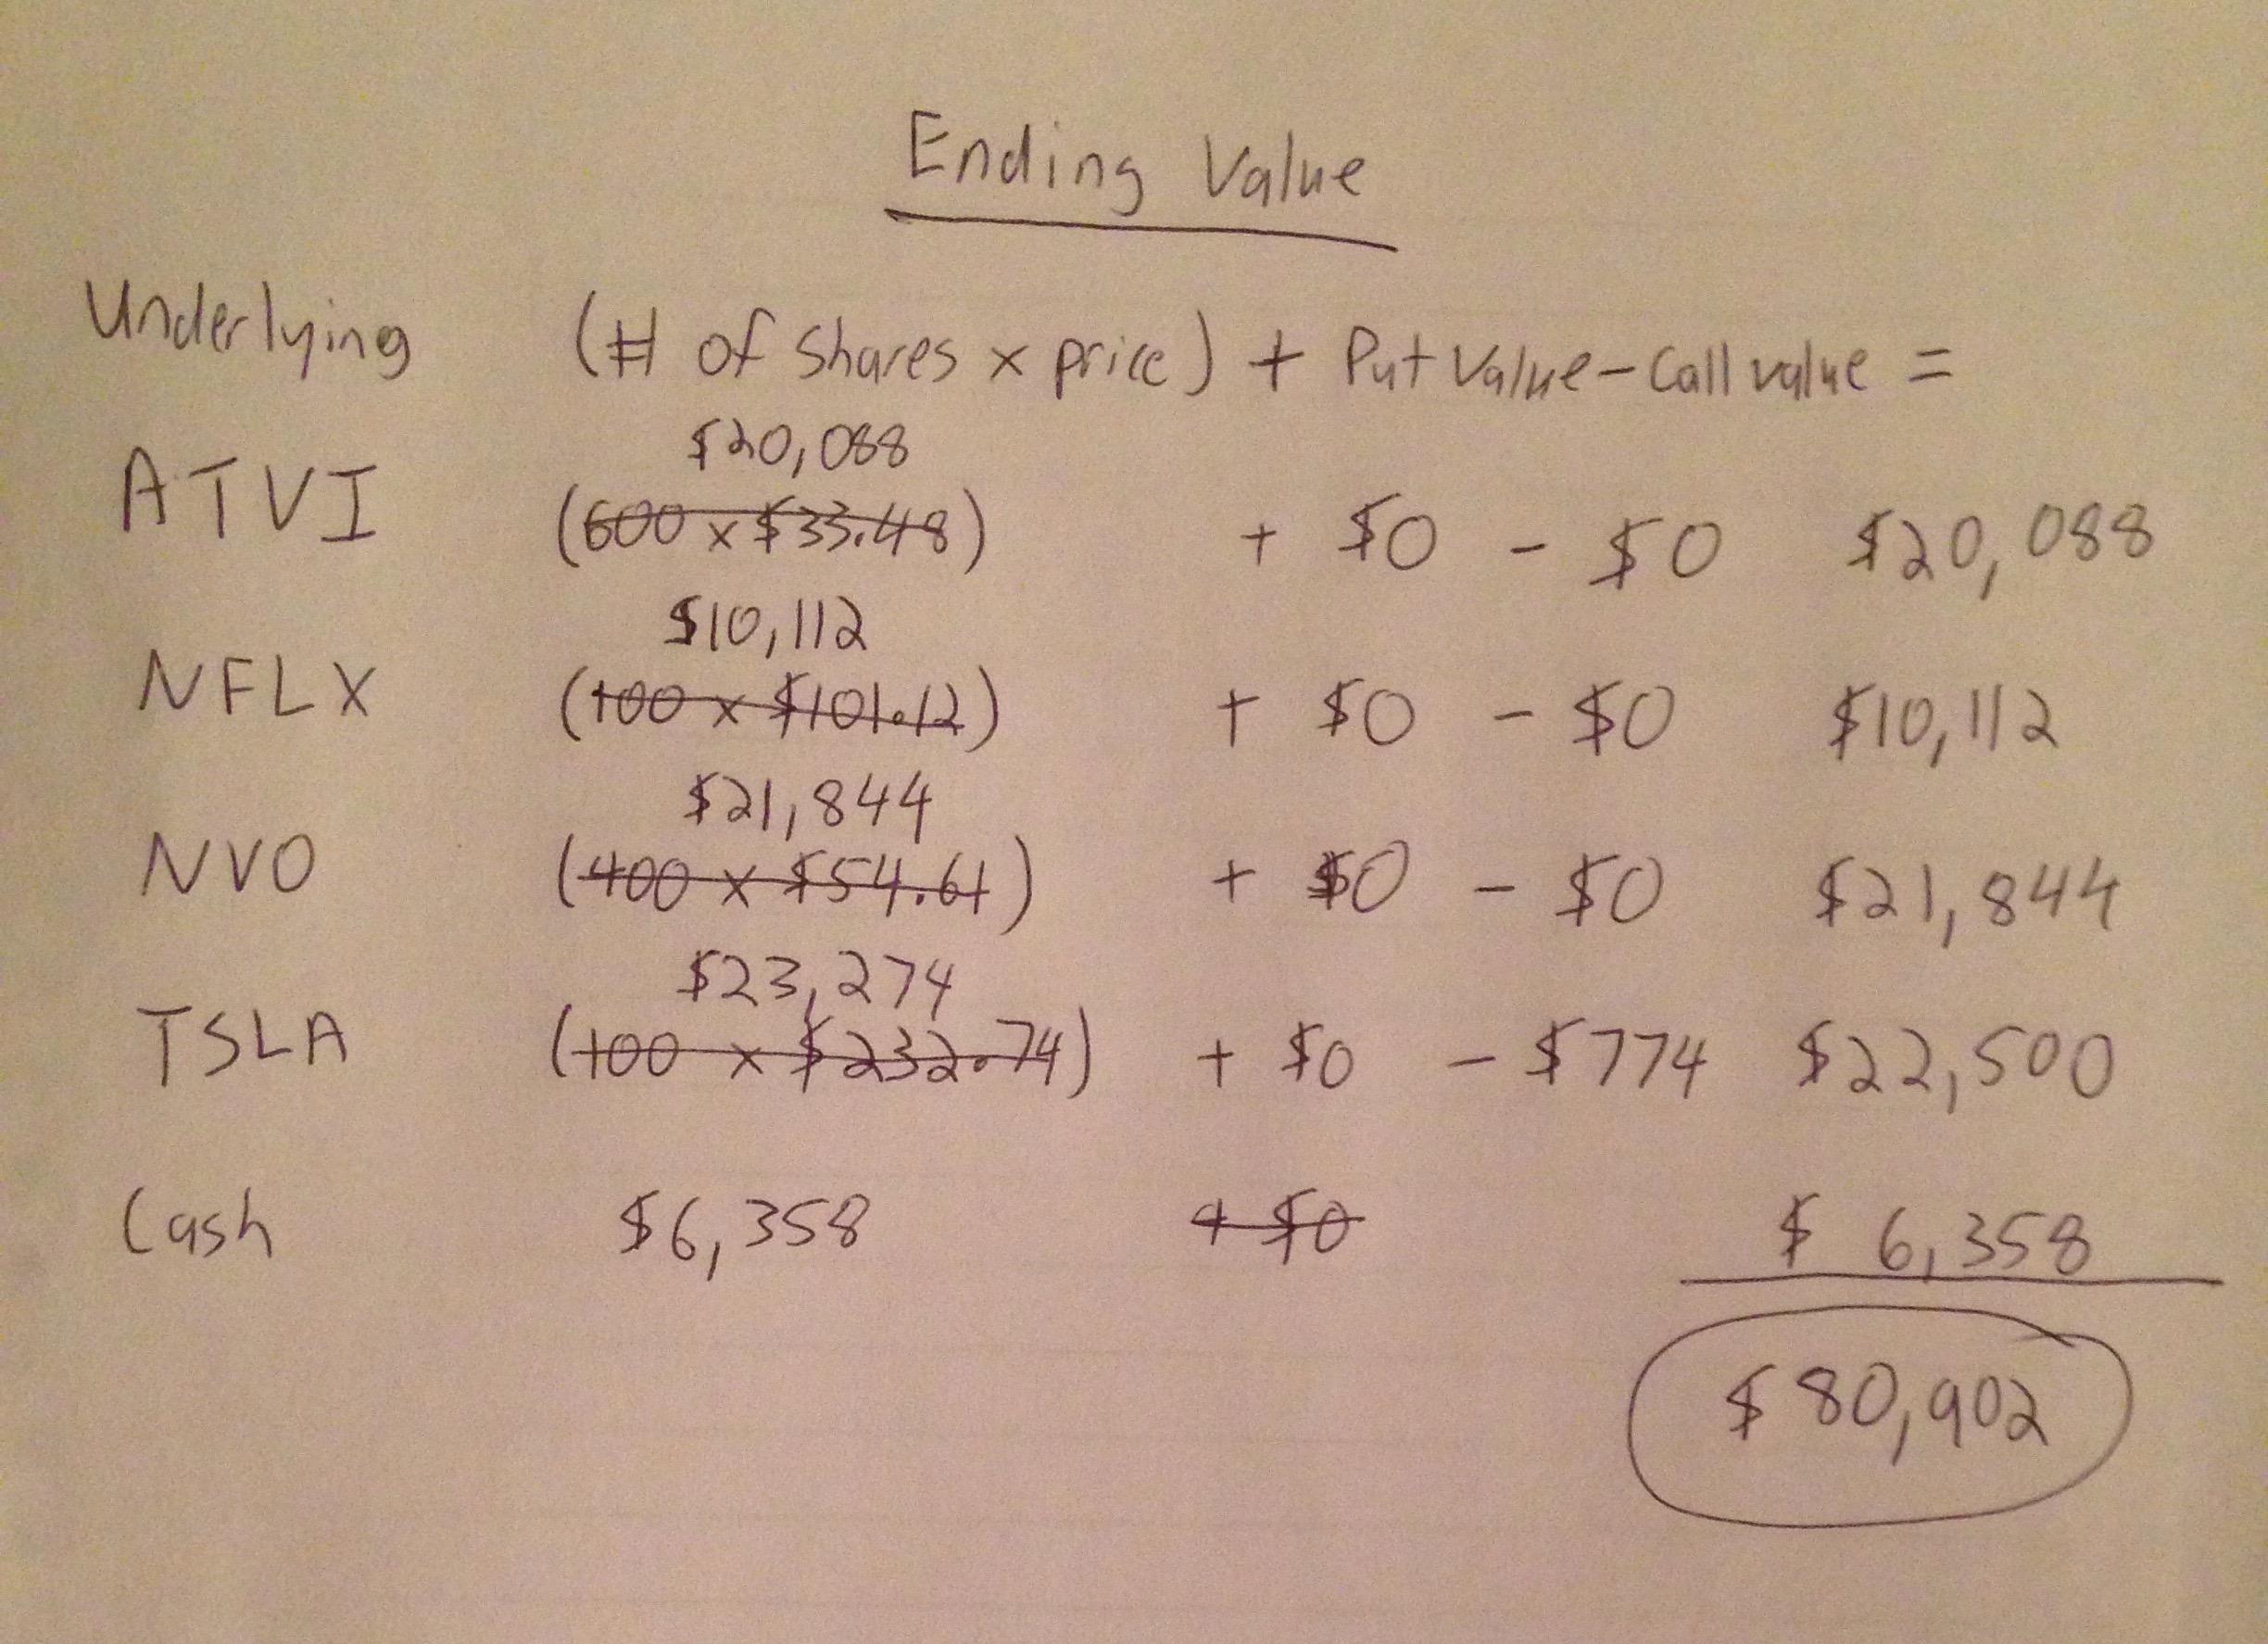 Ending Value
Underlying (# of shares x price) + Put Value - Call value =
$20,088
ATVI (600 x $33.48) + $0 - $0 $20,088
$10,112
NFLX (100 x $101.12) + $0 - $0 $10,112
$21,844
NVO (400 x $54.61) + $0 - $0 $21,844
$23,274
TSLA (100 x $232.74) + $0 - $774 $22,500
Cash $6,358 + $0 $ 6,358
$80,902